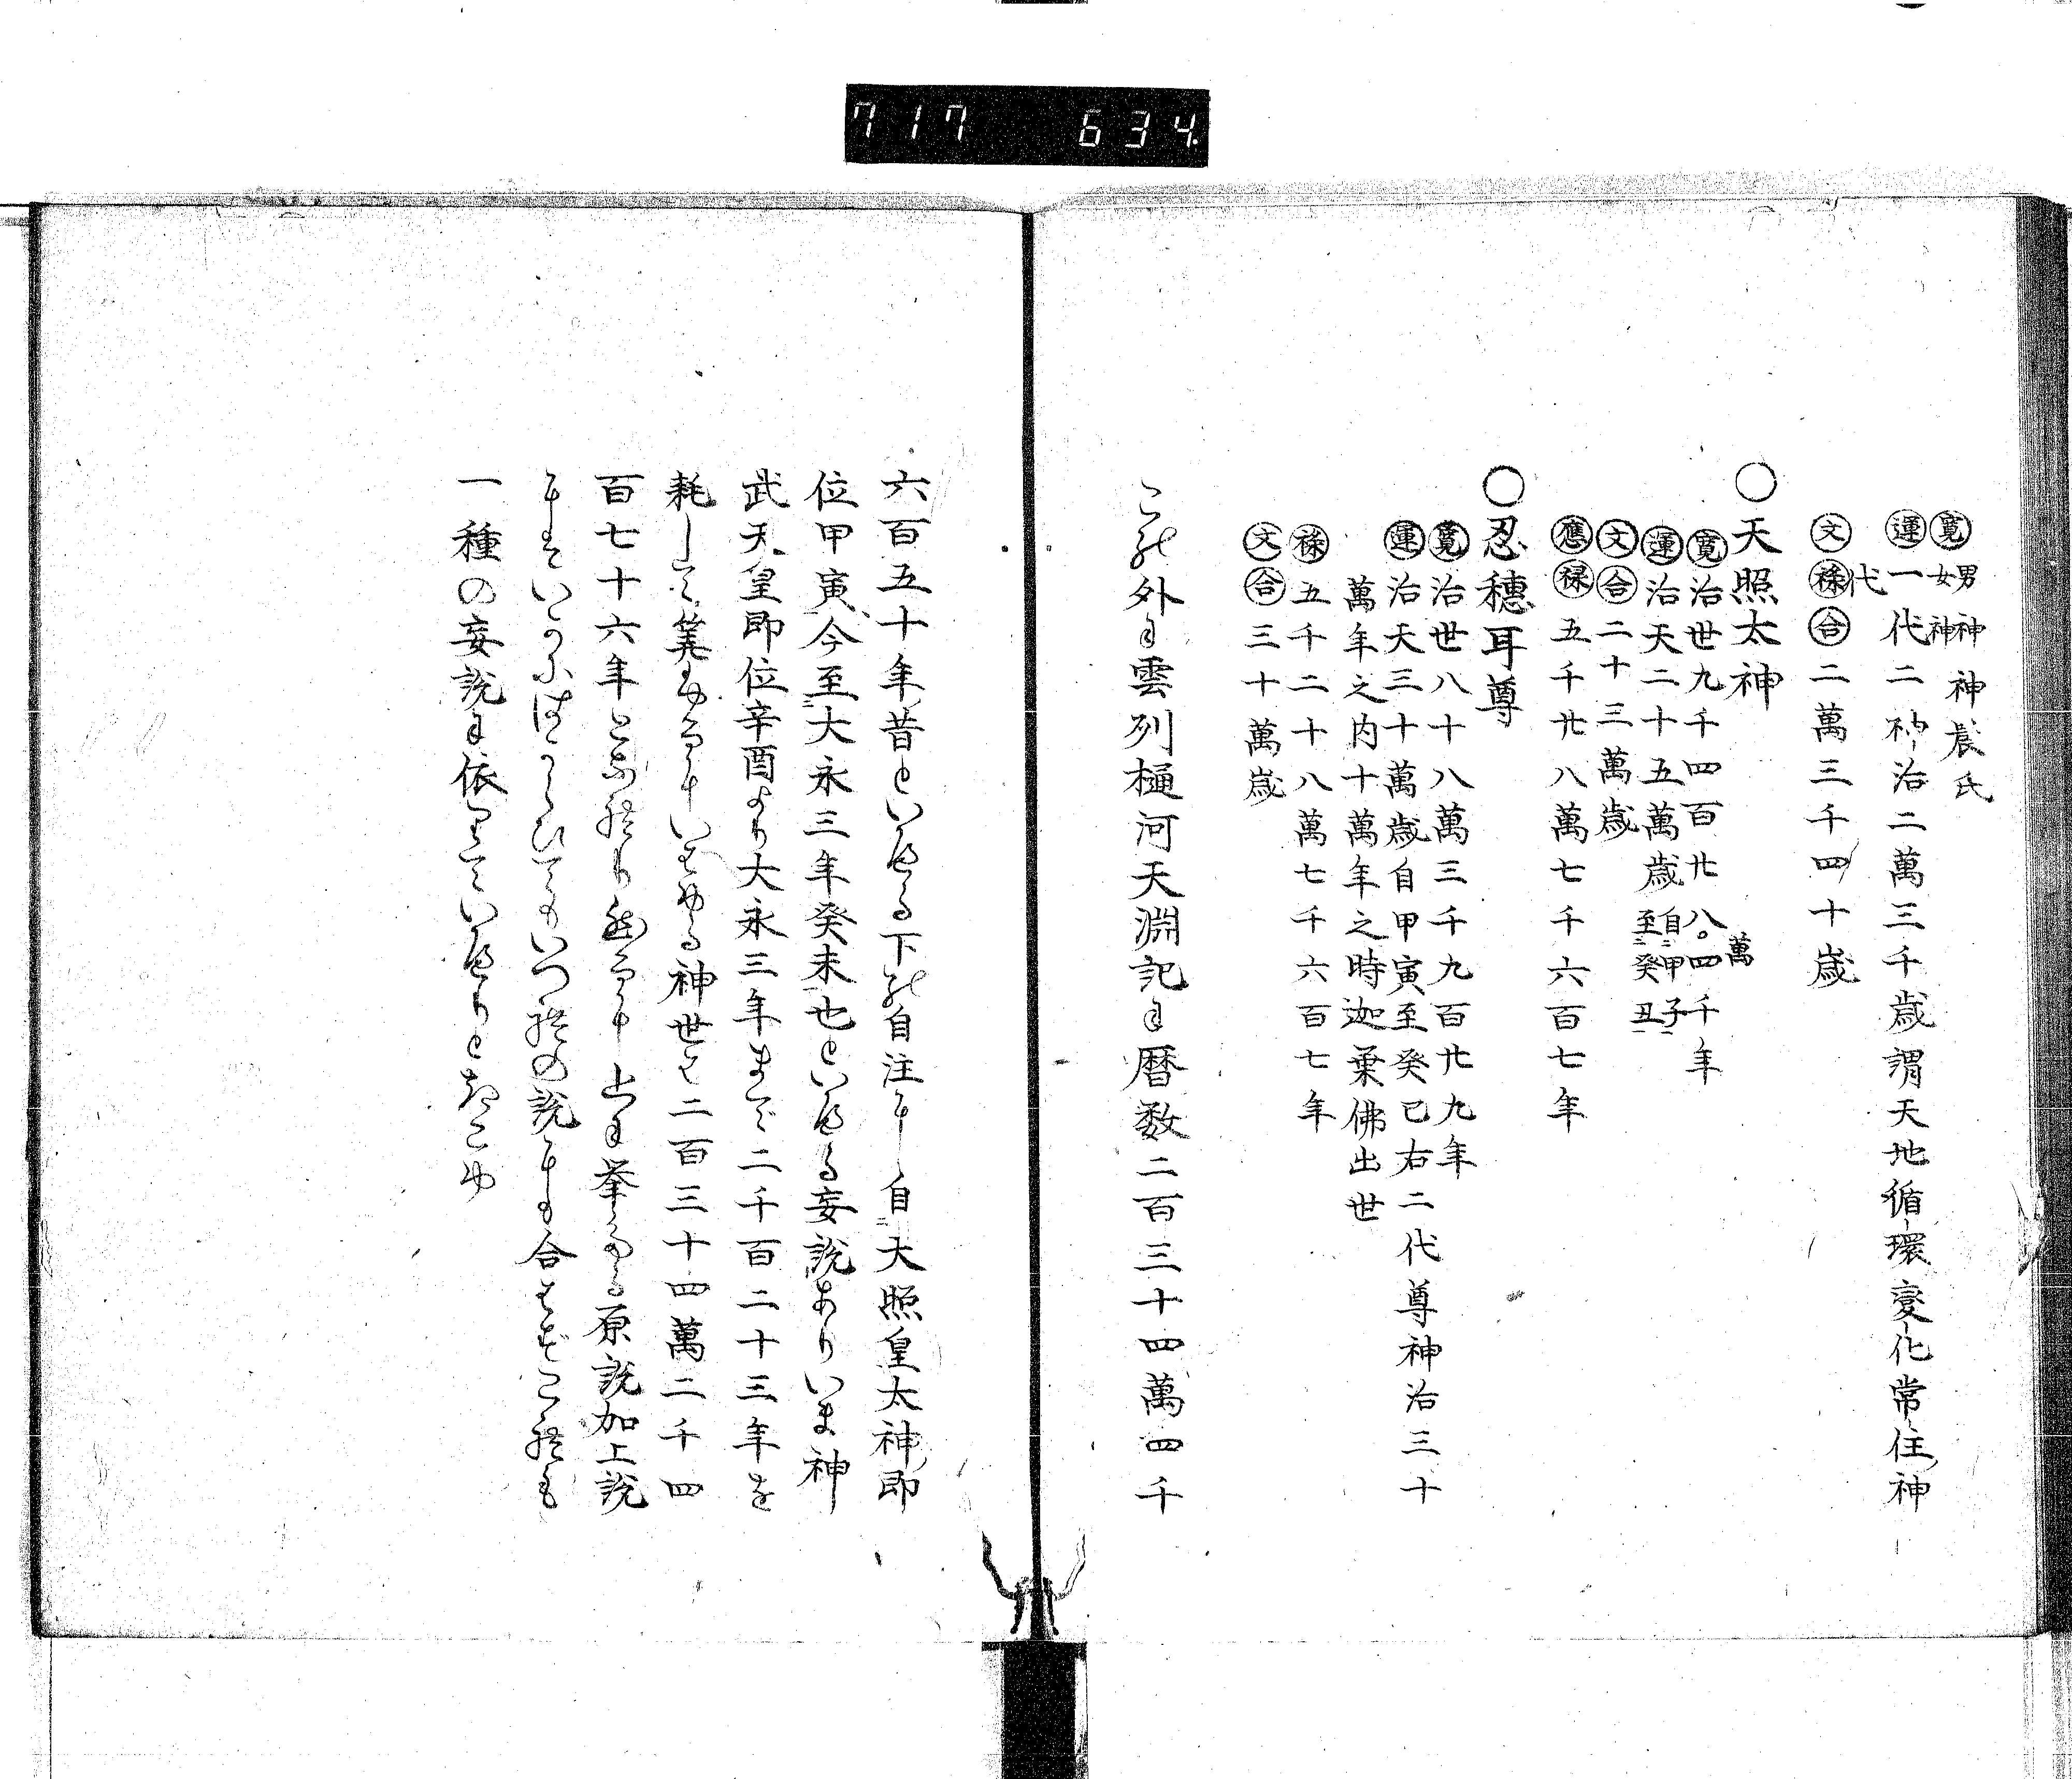 717 634
㊀寛 男神女神 神農氏
運 一代二神治二萬三千歳謂天地循環變化常住神
代
文 祿 合 二萬三千四十歳
○天照太神
寛 治世九千四百廿八萬四千年
運 治天二十五萬歳 自甲子至癸丑
文 合 二十三萬歳
應 禄 五千廿八萬七千六百七年
○忍穗耳尊
寛 治世八十八萬三千九百廿九年
運 治天三十萬歳自甲寅至癸巳右二代尊神治三十
萬年之内十萬年之時迦葉佛出世
禄 五千二十八萬七千六百七年
文 合 三十萬歳
この外に雲列樋河天淵記に暦数二百三十四萬四千
六百五十年昔といへる下の自注に自大照皇太神即
位甲寅今至大永三年癸未也といへる妄説ありいま神
武天皇即位辛酉より大永三年まで二千百二十三年を
耗して筭ふるにいはゆる神世は二百三十四萬二千四
百七十六年となれり然るに上に挙たる原説加上説
にはいかにはからひてもいつれの説にも合はずこれも
一種の妄説に依りていへりときこゆ